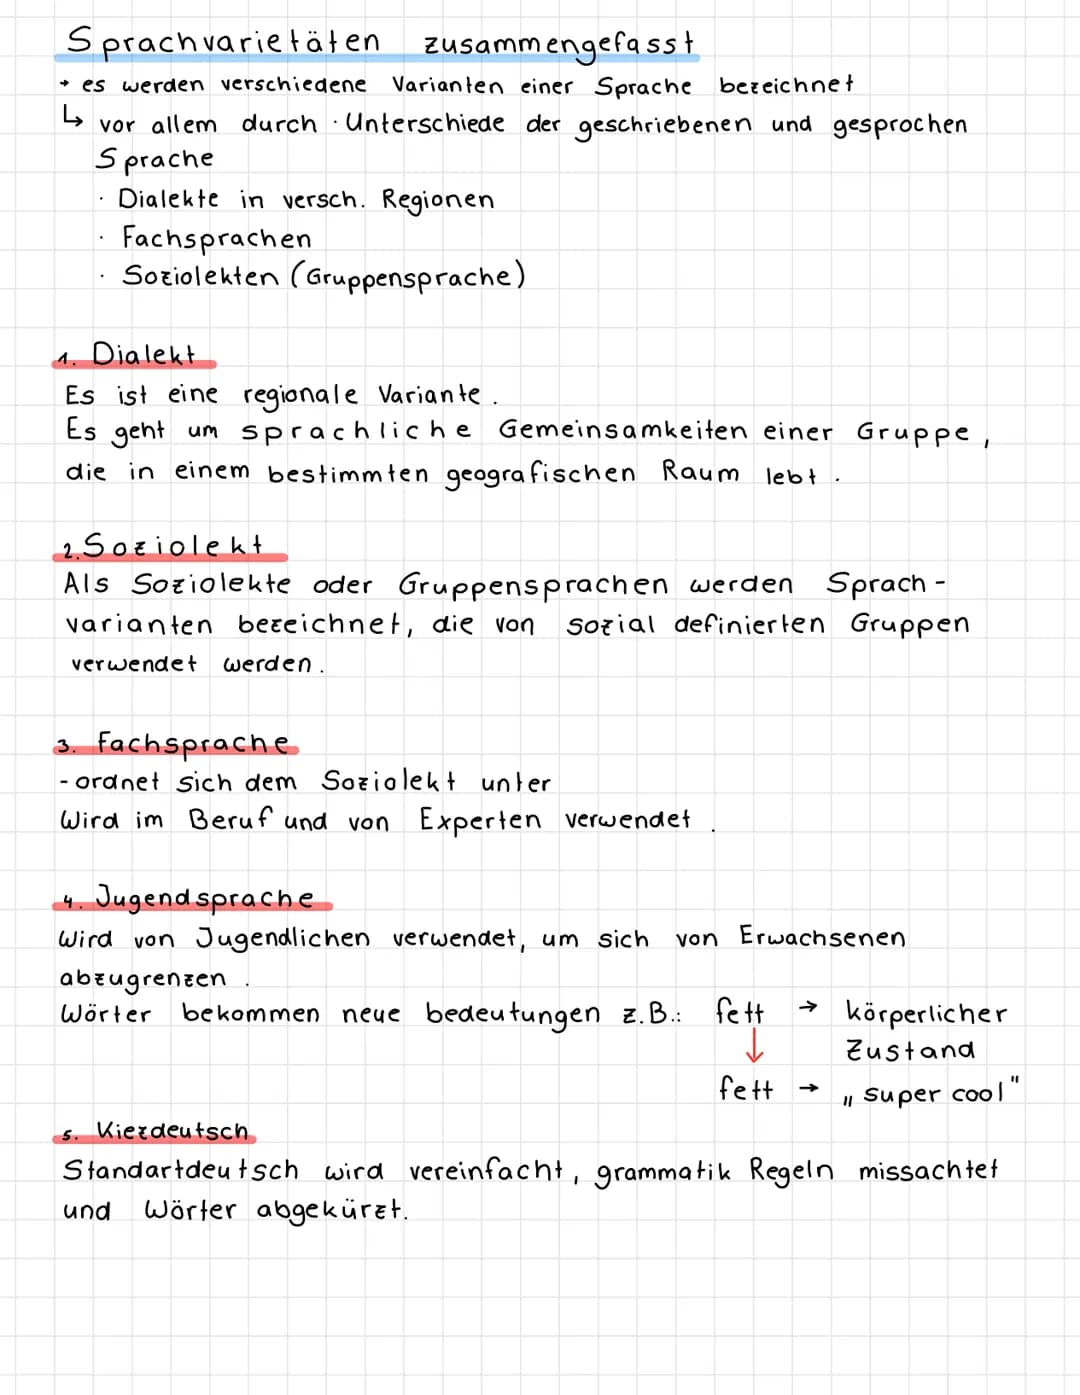 Sprachvarietäten zusammengefasst
→ es werden verschiedene Varianten einer Sprache bezeichnet
↳ vor allem durch · Unterschiede der geschriebenen und gesprochen
Sprache
· Dialekte in versch. Regionen
· Fachsprachen
· Soziolekten (Gruppensprache)
1. Dialekt
Es ist eine regionale Variante.
Es geht um sprachliche Gemeinsamkeiten einer Gruppe,
die in einem bestimmten geografischen Raum lebt.
2. Soziolekt
Als Soziolekte oder Gruppensprachen werden Sprach-
varianten bezeichnet, die von sozial definierten Gruppen
verwendet werden.
3. Fachsprache
- ordnet sich dem Soziolekt unter
Wird im Beruf und von Experten verwendet.
4. Jugendsprache
Wird von Jugendlichen verwendet, um sich von Erwachsenen
abzugrenzen.
Wörter bekommen neue bedeutungen z.B.: fett → körperlicher
↓ Zustand
fett → „super cool"
5. Kiezdeutsch
Standartdeutsch wird vereinfacht, grammatik Regeln missachtet
und Wörter abgekürzt.